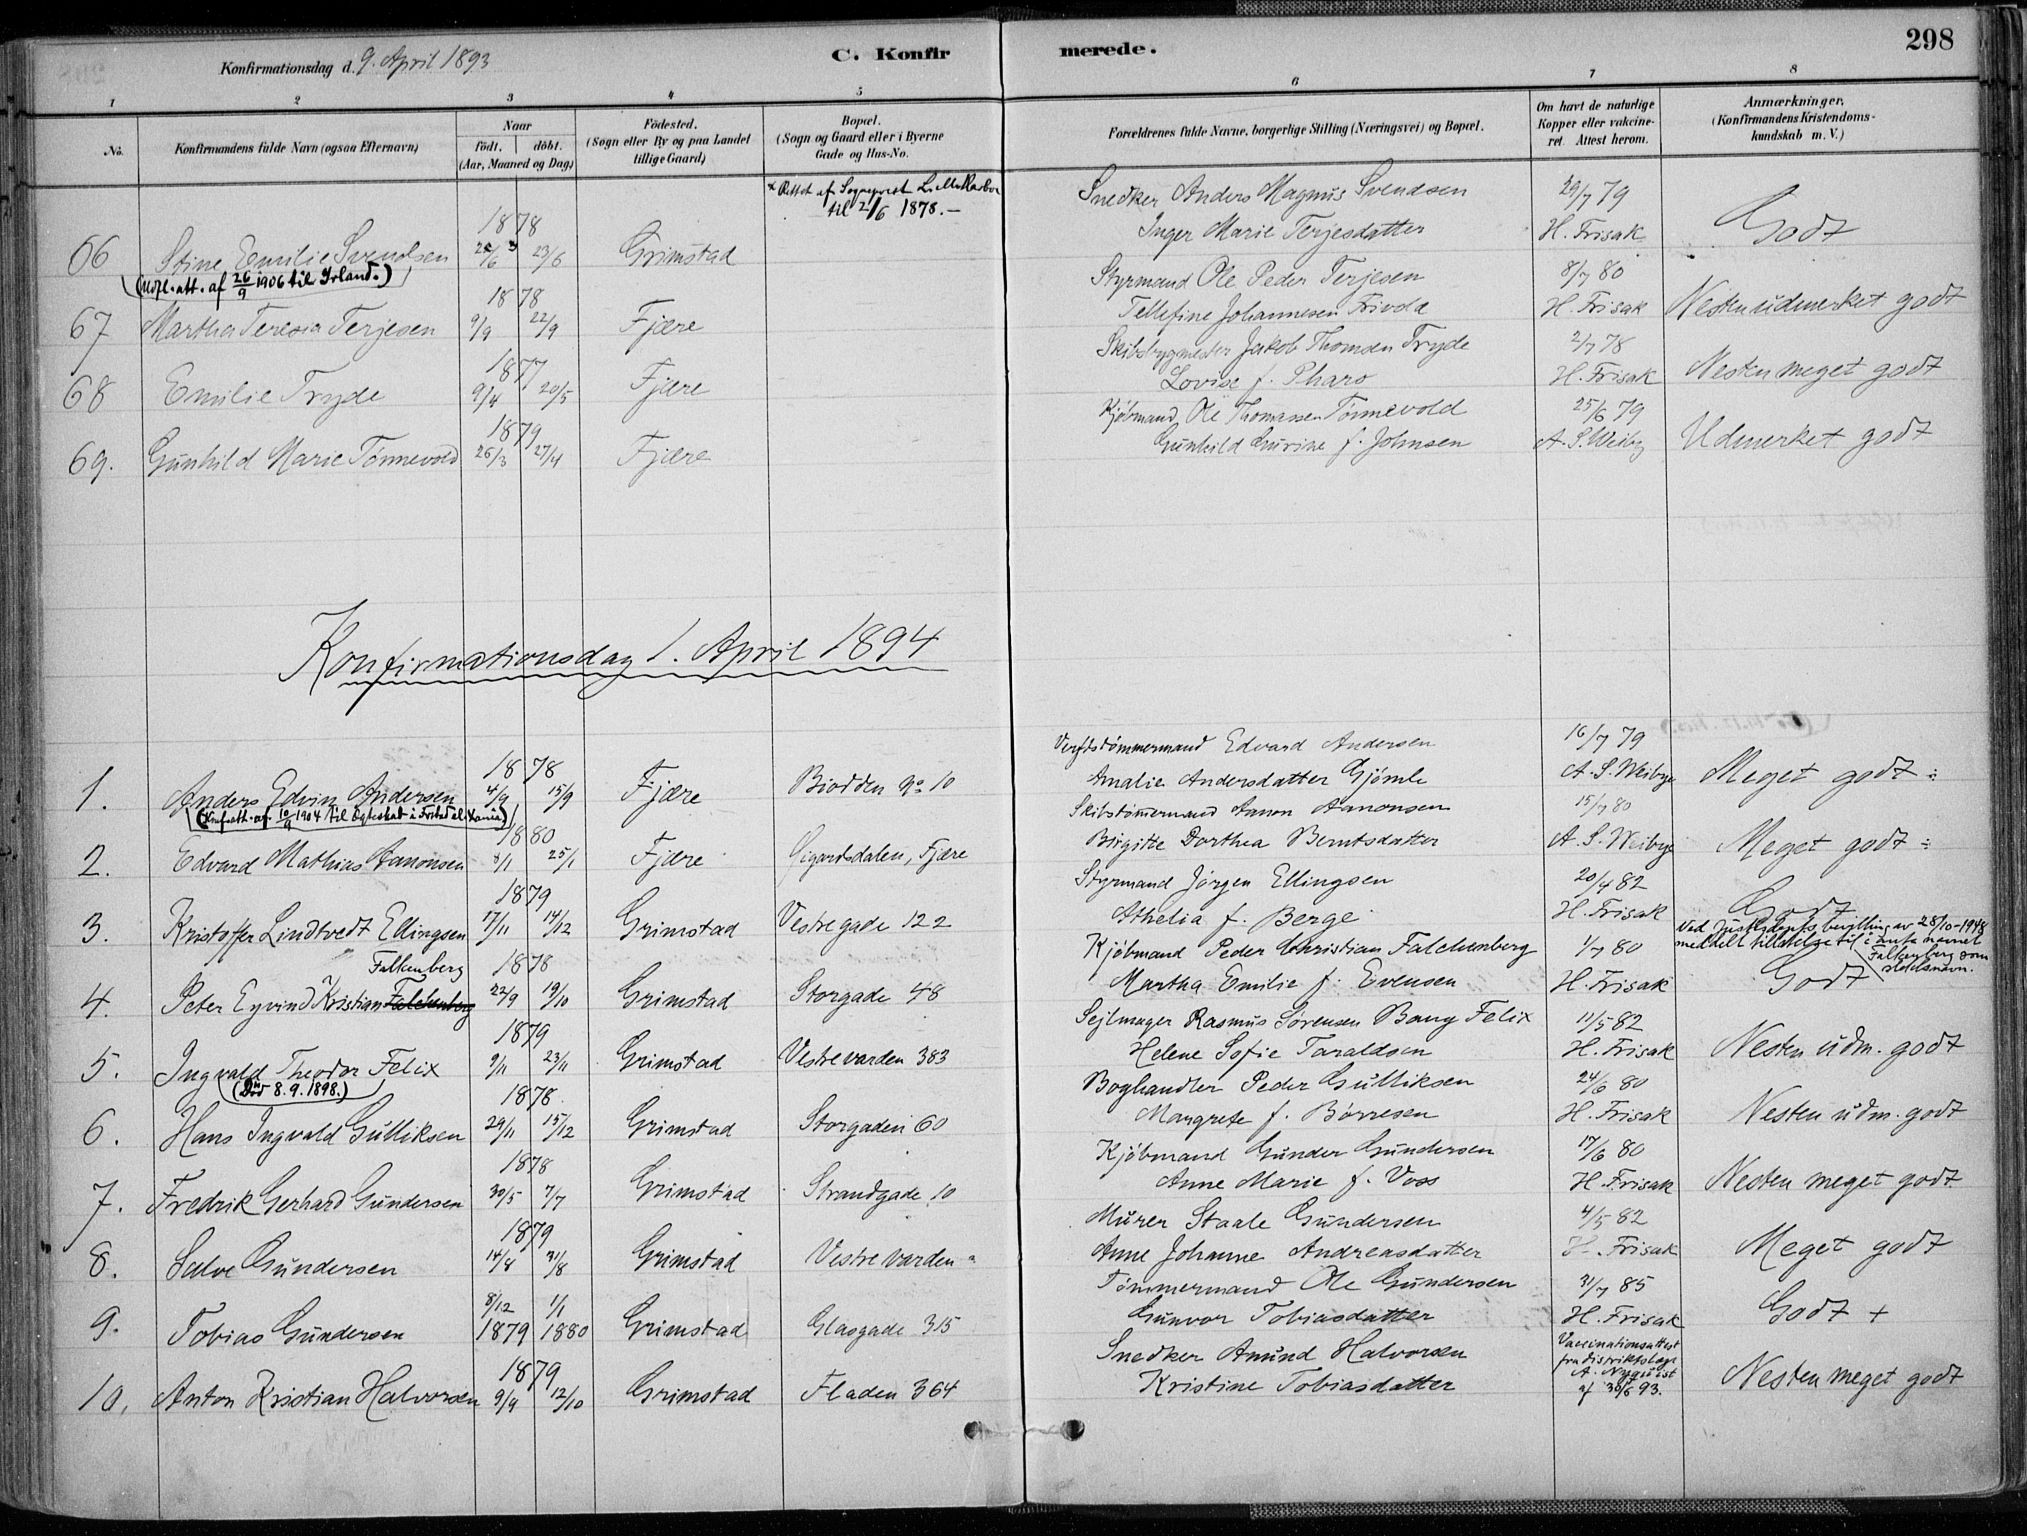 298
Konfirmationsdag d. 9. April 1893
C. Konfirmerede.
1 2 3 4 5 6 7 8
No.
Konfirmandens fulde Navn (ogsaa Efternavn)
Naar
födt. | döbt.
(Aar, Maaned og Dag)
Födested.
(Sogn eller By og paa Landet
tillige Gaard)
Bopæl.
(Sogn og Gaard eller i Byerne
Gade og Hus-No.
Forældrenes fulde Navne, borgerlige Stilling (Næringsvei) og Bopæl.
Om havt de naturlige
Kopper eller vakcine-
ret. Attest herom.
Anmærkninger.
(Konfirmandens Kristendoms-
kundskab m. V.)
x Rettet af Sogneprest
til 2/6 1878.—
Snedker Anders Magnus Svendsen 29/7 79
1878
66 Stine Emilie Svendsen 23/6 Grimstad Inger Marie Terjesdatter H. Frisak Godt
(Udfl. att. af 26/9 1906 til Irland.)
Styrmand Ole Peder Terjesen 8/7 80
1878
67 Martha Teresia Terjesen 9/9 22/9 Fjære Tellefine Johannesen Frivold H. Frisak Nesten udmerket godt
Skibsbygmester Jakob Thomsen Fryde 2/7 78
1877
68 Emilie Fryde 9/4 20/5 Fjære Lovise f. Pharo H. Frisak Nesten meget godt
Kjøbmand Ole Thomassen Tønnevold 25/6 79
1879
69. Gunhild Marie Tønnevold 26/3 27/4 Fjære Gunhild Gurine f. Johnsen A. S. Weiby Udmerket godt
Konfirmationsdag 1. April 1894
Verftstømmermand Edvard Andersen 16/7 79
1878
1. Anders Edvin Andersen 4/9 15/9 Fjære Biodden No 10 Amalie Andersdatter Gjømle A. S. Weibye Meget godt ÷
(Konf. att. af 10/9 1904 til Ægteskab i Kania)
Skibstømermand Aanon Aanonsen 15/7 80
1880
2. Edvard Mathias Aanonsen 8/1 25/1 Fjære Gigardsdalen, Fjære Birgitte Dorthea Berntsdatter A. S. Weibye Meget godt ÷
Styrmand Jørgen Ellingsen 20/4 82
1879
3. Kristoffer Lindtvedt Ellingsen 17/11 14/12 Grimstad Vestregade 122 Athelia f. Berge H. Frisak Godt
Ved Justisdepts bevilling av 28/10-1948
meddelt tillatelse til å anta navnet
Falkenberg som
slektsnavn.
Falkenberg 1878 Kjøbmand Peder Christian Falchenberg 1/7 80
4. Peter Eyvind Kristian Falchenberg 22/9 19/10 Grimstad Storgade 48 Martha Emilie f. Evensen H. Frisak Godt
Sejlmager Rasmus Sørensen Bang Felix 11/5 82
1879
5. Ingvald Theodor Felix 9/11 23/11 Grimstad Vestrevarden 383 Helene Sofie Taraldsen H. Frisak Nesten udm. godt
(Død 8.9.1898.)
Boghandler Peder Gulliksen 24/6 80
1878.
6. Hans Ingvald Gulliksen 29/11 15/12 Grimstad Storgaden 60 Margrete f. Børresen H. Frisak Nesten udm. godt
Kjøbmand Gunder Gundersen 17/6 80
1878
7. Fredrik Gerhard Gundersen 30/5 7/7 Grimstad Strandgade 10 Anne Marie f. Voss H. Frisak Nesten meget godt
Murer Staale Gundersen 4/5 82
1879
8. Salve Gundersen 14/8 31/8 Grimstad Vestre varden Anne Johanne Andreasdatter H. Frisak Meget godt
Tømmermand Ole Gundersen 31/7 85
8/12 1/1
9. Tobias Gundersen 1879 1880 Grimstad Glasgade 315 Gunvor Tobiasdatter H. Frisak Godt +
Snedker Amund Halvorsen
1879
10. Anton Kristian Halvorsen 9/9 12/10 Grimstad Fladen 364 Kristine Tobiasdatter Nesten meget godt
Vaccinationsattest
fra distriktslæge
A. Nyquist
af 30/6 93.